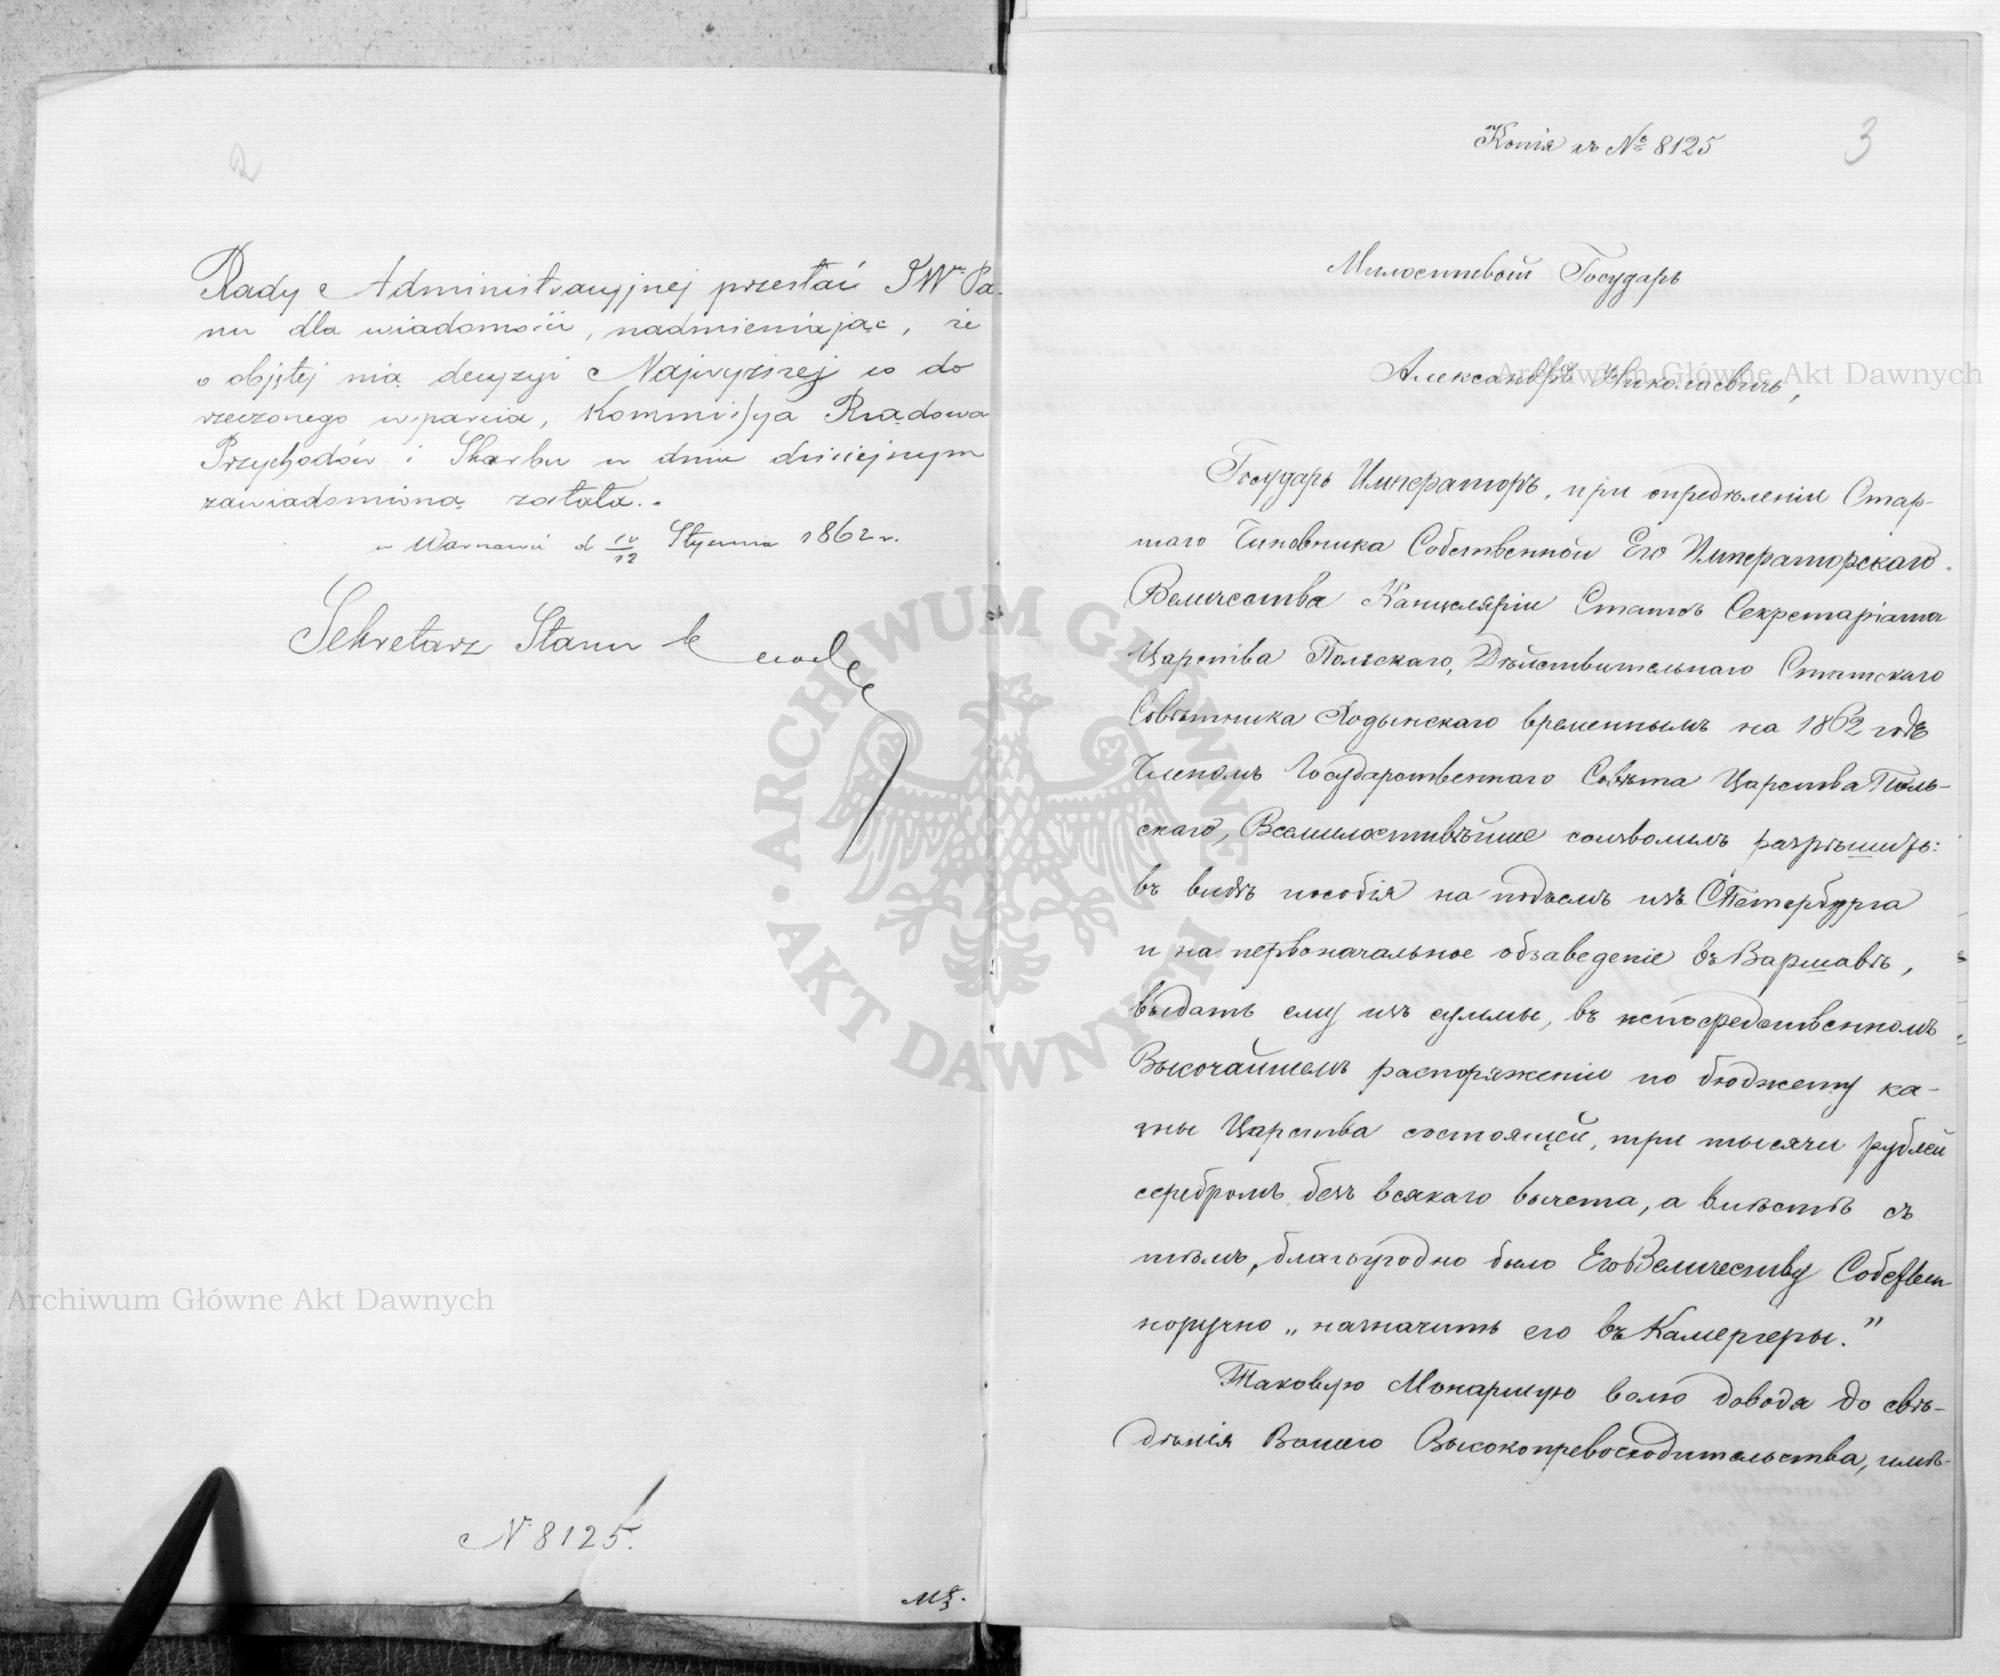 2
Rady Administracyjnej przesłać JWu Pa-
nu dla wiadomości, nadmieniając, że
o objętej nią decyzyi Najwyższej co do
rzeczonego wsparcia, Kommissya Rządowa
Przychodów i Skarbu w dniu dzisiejszym
zawiadomioną została.
w Warszawie d Stycznia 1862 r.
Sekretarz Stanu
N. 8125.
Копія къ № 8125
3
Милостивый Государь
Александръ Николаевичъ,
Государь Императоръ, при опредѣленіи Стар-
шаго Чиновника Собственной Его Императорскаго
Величества Канцеляріи Статсъ Секретаріата
Царства Польскаго, Дѣйствительнаго Статскаго
Совѣтника Ходынскаго временнымъ на 1862 годъ
Членомъ Государственнаго Совѣта Царства Поль-
скаго, Всемилостивѣйше соизволилъ разрѣшить:
въ видѣ пособія на подъемъ изъ СПетербурга
и на первоначальное обзаведеніе въ Варшавѣ,
выдать ему изъ суммы, въ непосредственномъ
Высочайшемъ распоряженіи по бюджету ка-
зны Царства состоящей, три тысячи рублей
серебромъ безъ всякаго вычета, а вмѣстѣ съ
тѣмъ, благоугодно было Его Величеству Собствен
норучно „назначить его въ Камергеры."
Таковую Монаршую волю доводя до свѣ-
дѣнія Вашего Высокопревосходительства, имѣ-
Archiwum Główne Akt Dawnych
Archiwum Główne Akt Dawnych
ARCHIWUM GŁÓWNE · AKT DAWNYCH ·